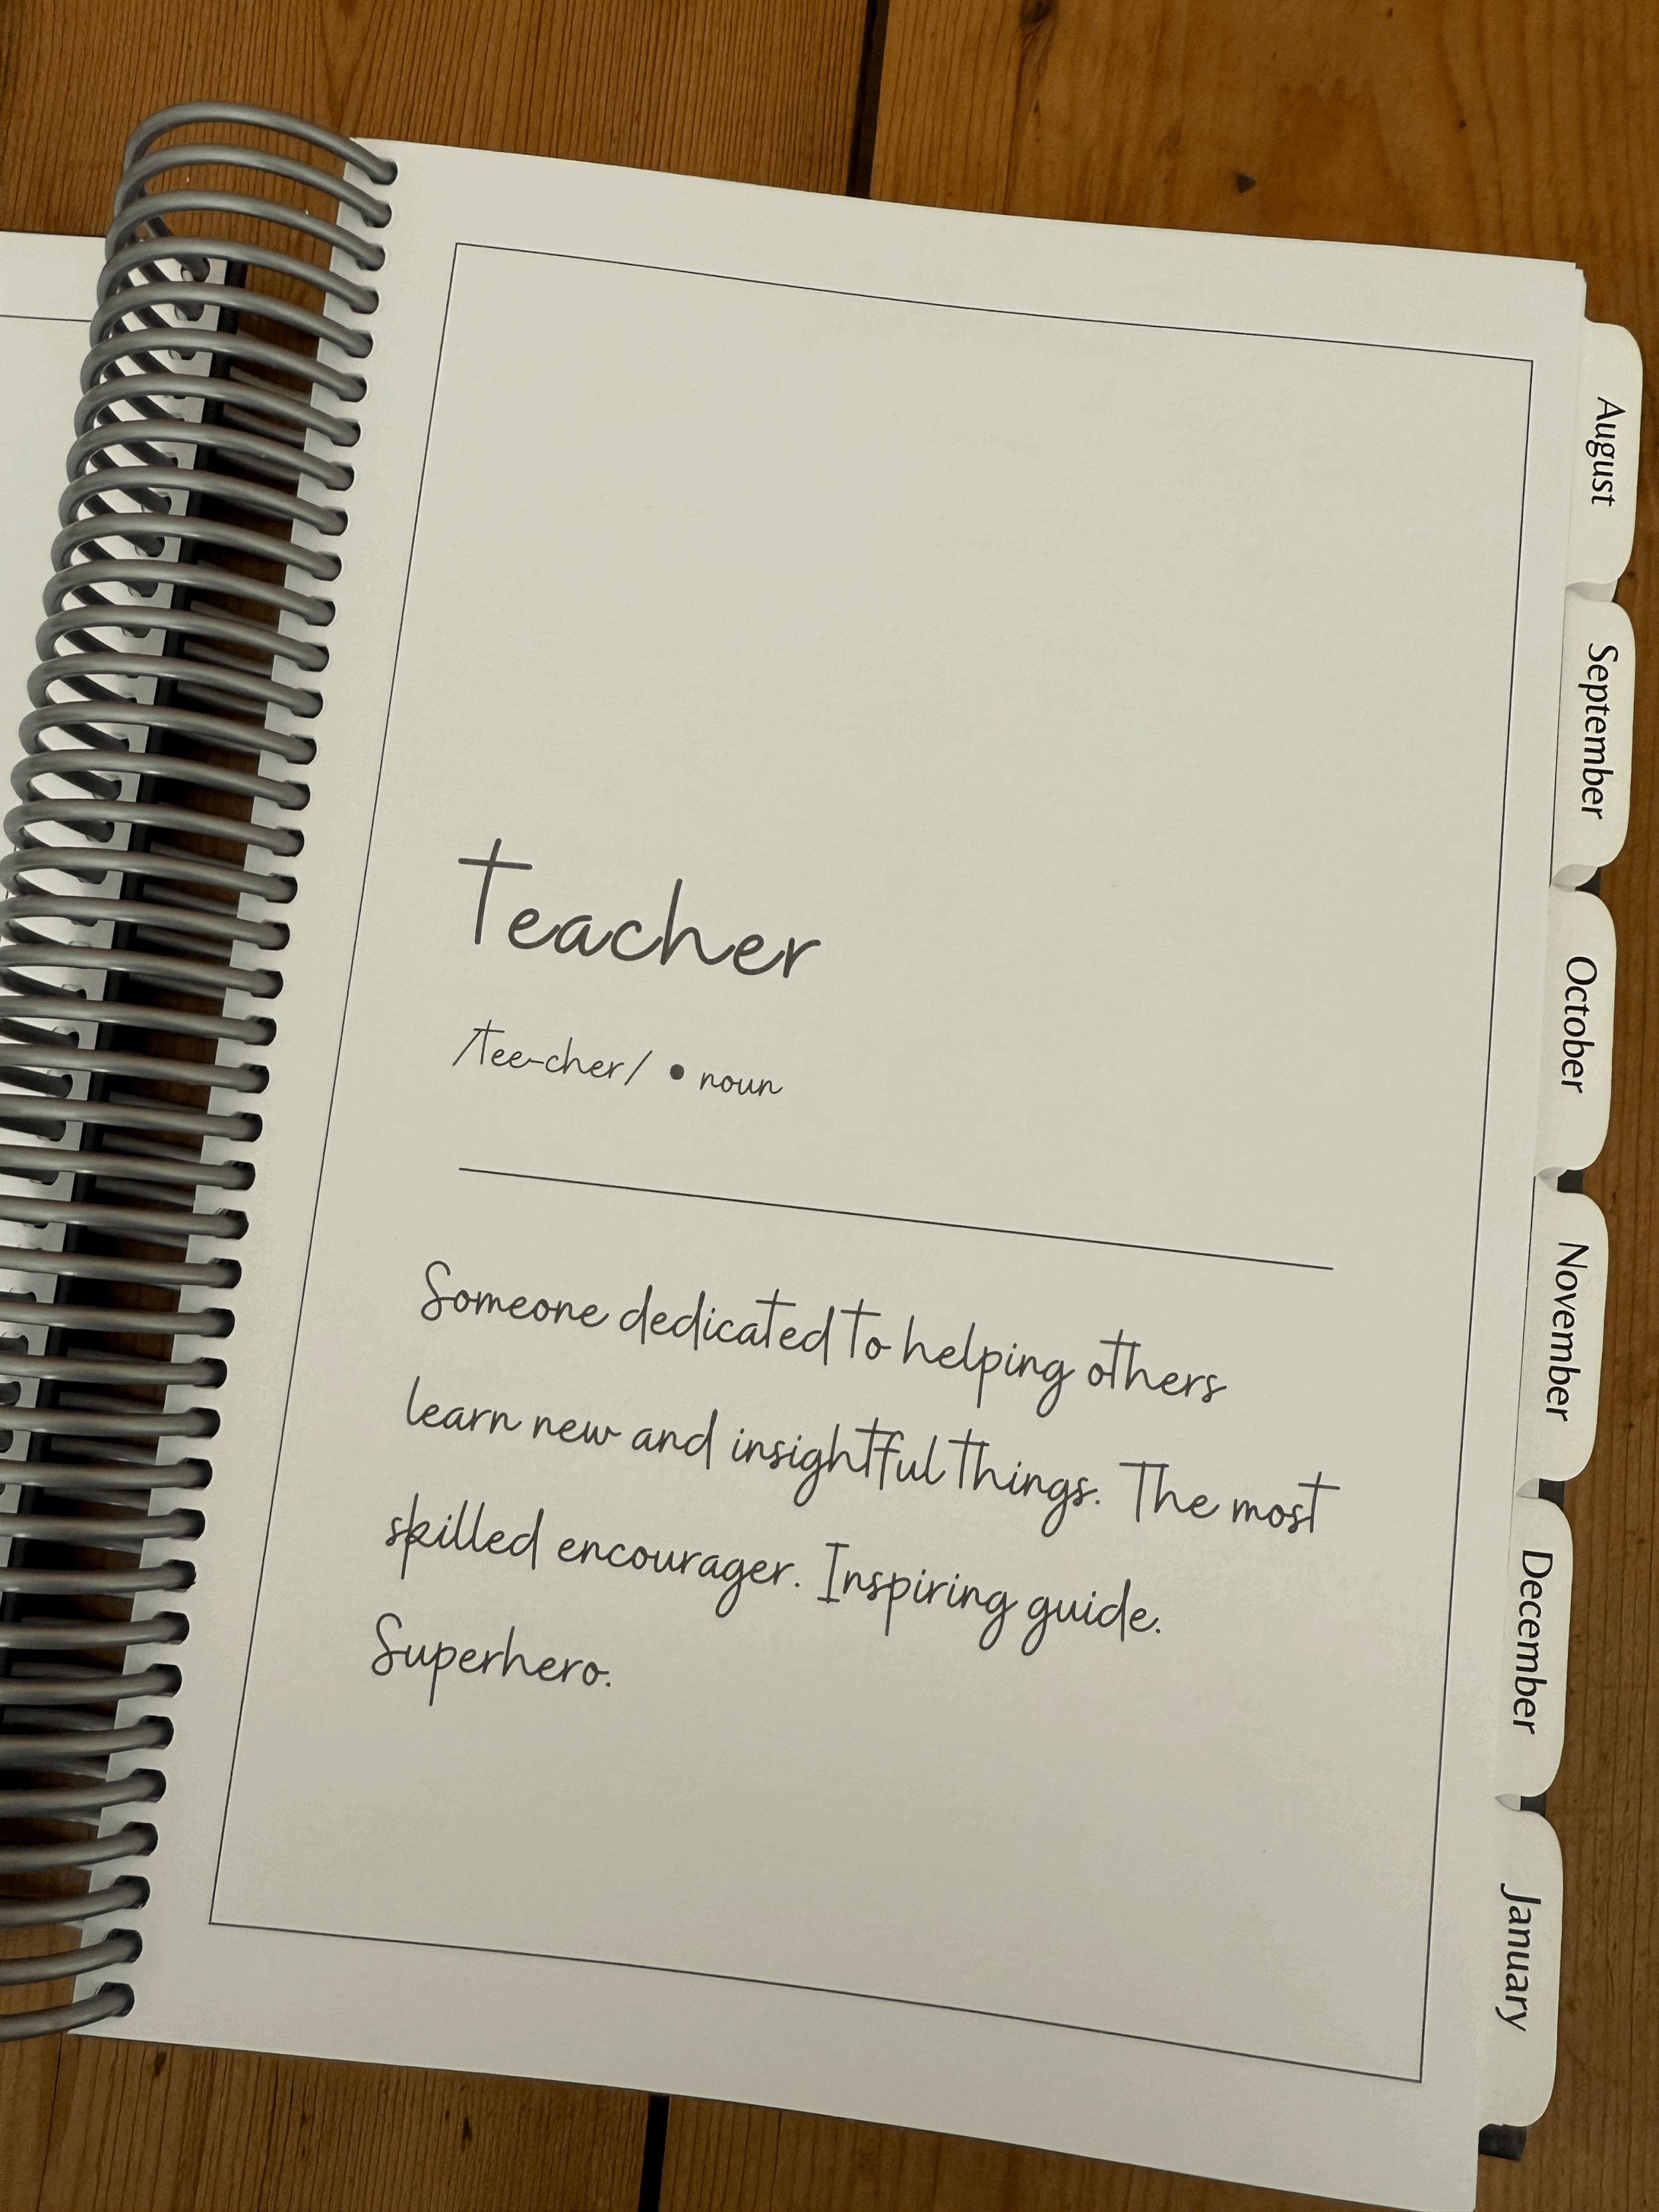 Teacher
/tee-cher/ • noun
Someone dedicated to helping others
learn new and insightful things. The most
skilled encourager. Inspiring guide.
Superhero.
August
September
October
November
December
January